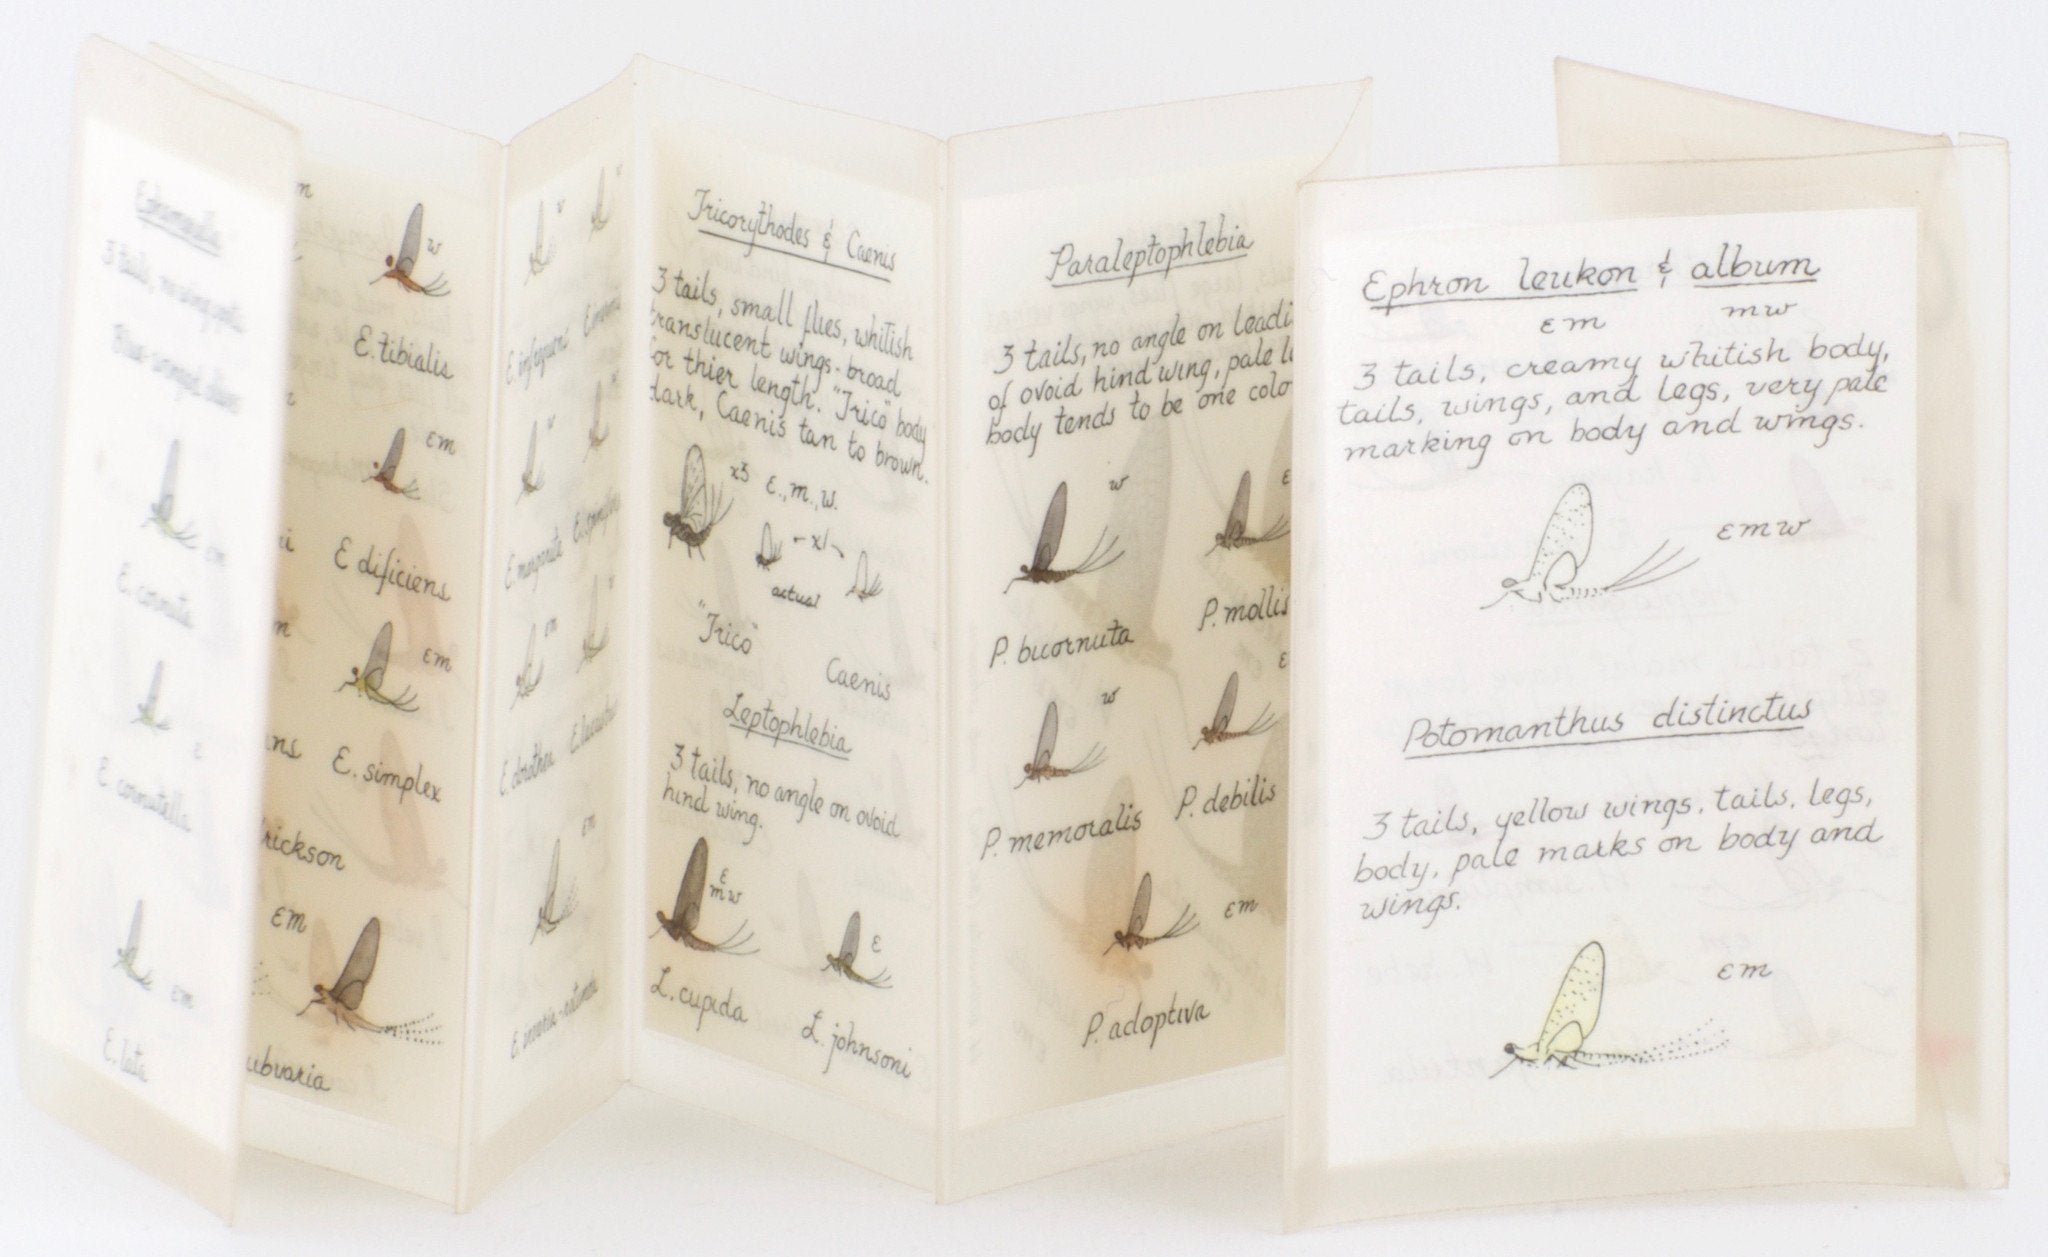 E. cornuta
m
E. cornutella
E. lata
em
w
E. tibialis
em
E. dificiens
em
E. simplex
rickson
em
ubvaria
E. infrequens
E. margarita
E. dorothea
em
Tricorythodes & Caenis
3 tails, small flies, whitish
translucent wings - broad
for thier length. "Trico" body
dark, Caenis tan to brown.
x3 E., m., w.
- x1 -
actual
"Trico"
Caenis
Leptophlebia
3 tails, no angle on ovoid
hind wing.
E
m w
E
L. cupida
L. johnsoni
Paraleptophlebia
3 tails, no angle on leadi
of ovoid hind wing, pale l
body tends to be one colo
w
E
P. bicornuta
P. mollis
w
E
P. memoralis
P. debilis
em
P. adoptiva
Ephron leukon & album
em mw
3 tails, creamy whitish body,
tails, wings, and legs, very pale
marking on body and wings.
emw
Potomanthus distinctus
3 tails, yellow wings, tails, legs,
body, pale marks on body and
wings.
em